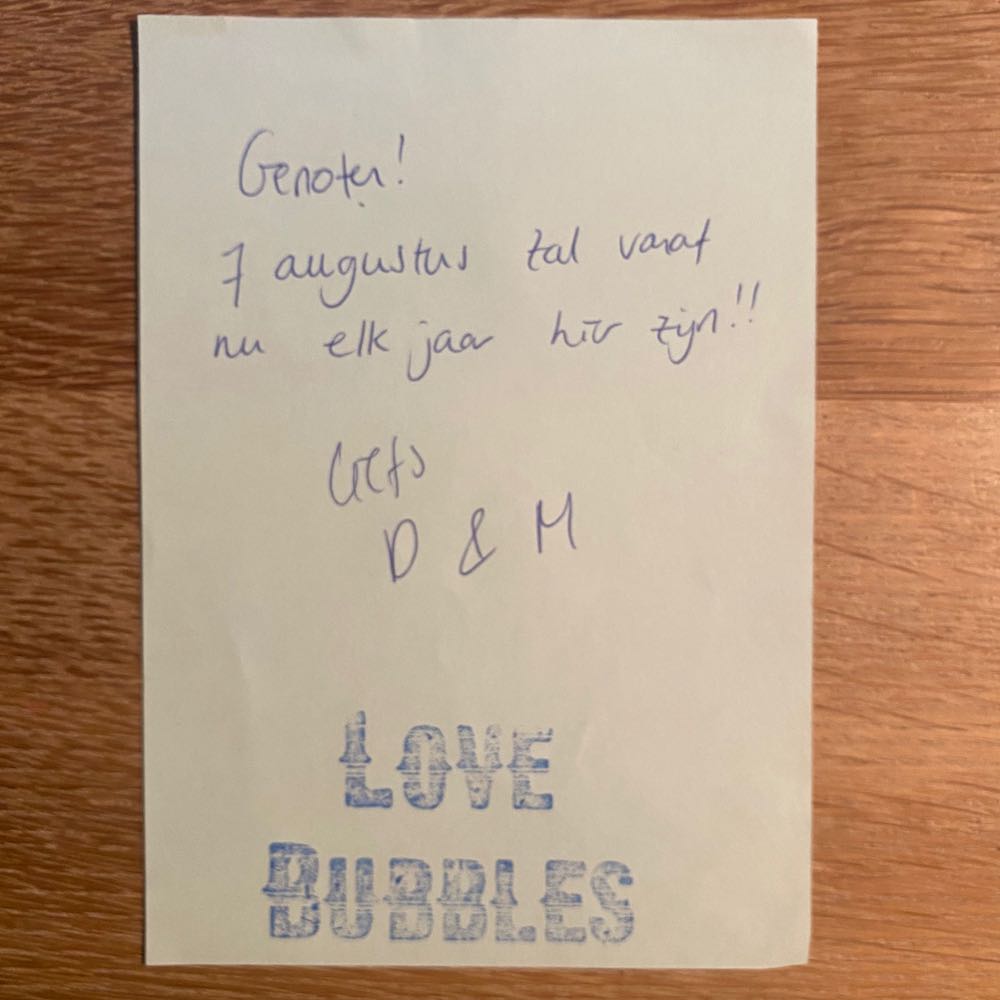 Genoten!
7 augustus zal vanaf
nu elk jaar hier zijn!!
Grts
D & M
LOVE
BUBBLES